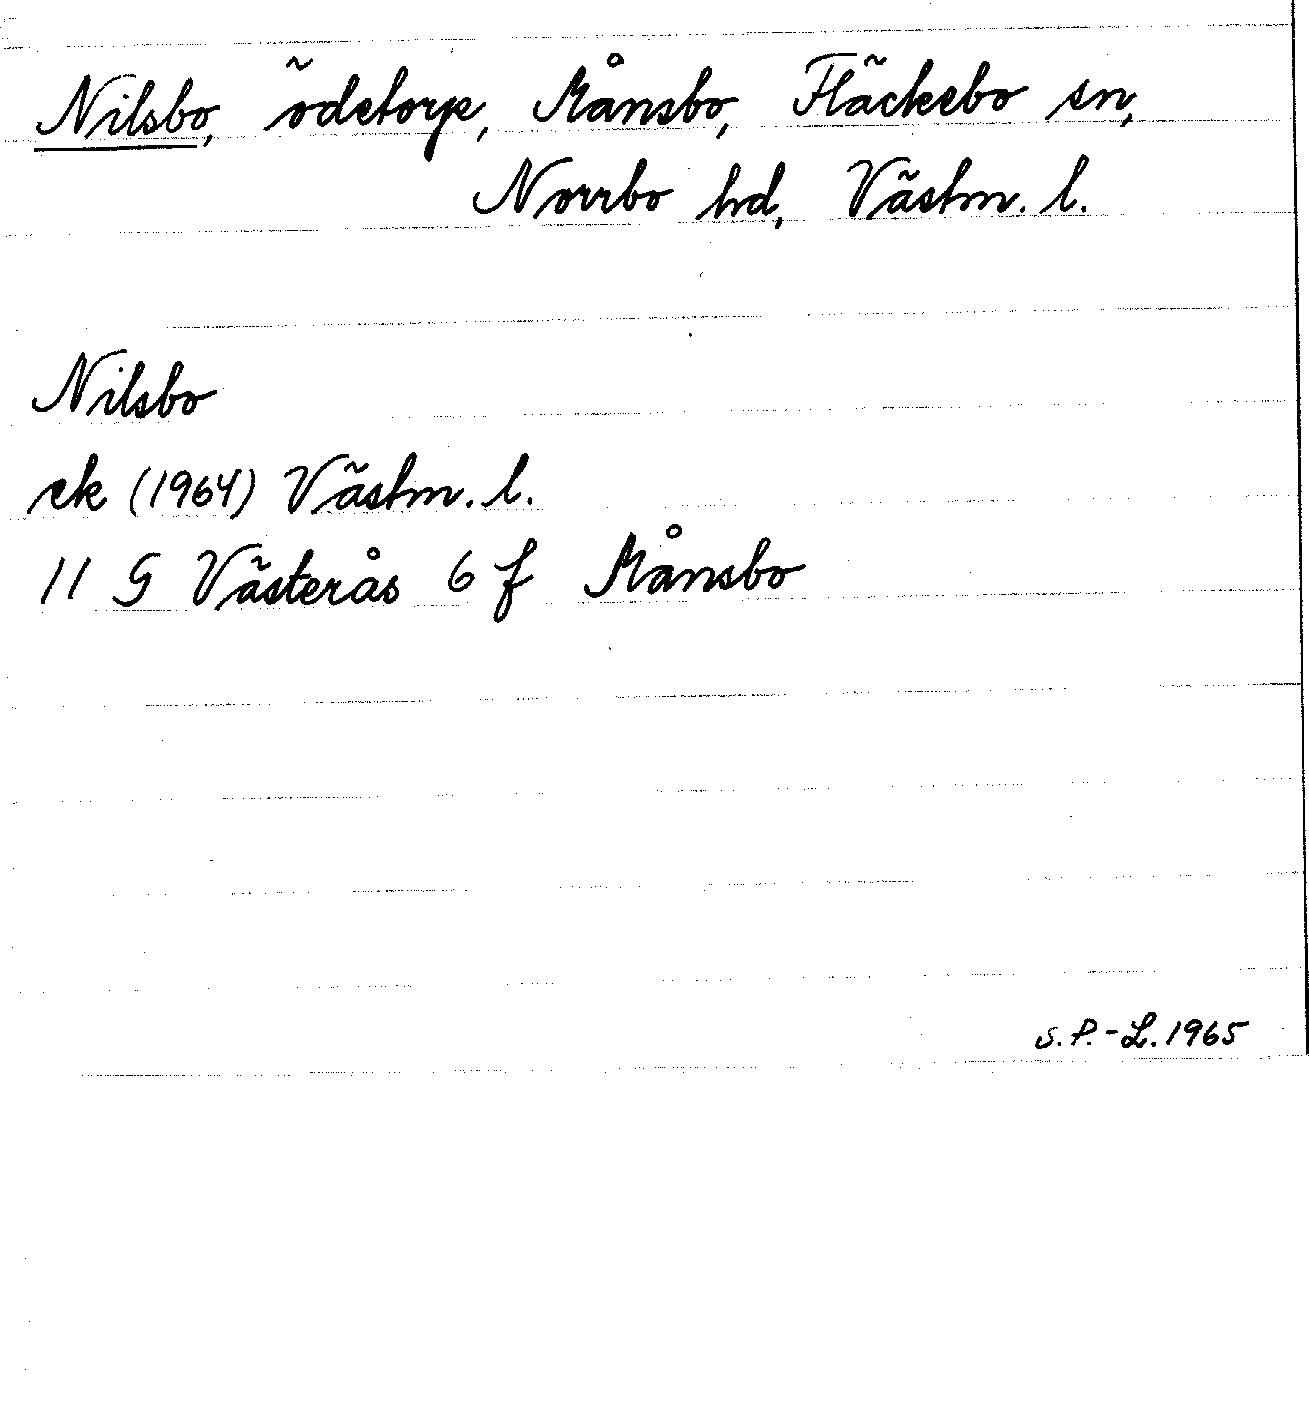 Nilsbo, ödetorp, Månsbo, Fläckebo sn,
Norrbo hd, Västm. l.
Nilsbo
ek (1964) Västm. l.
11 G Västerås 6 f Månsbo
S.P.-L. 1965